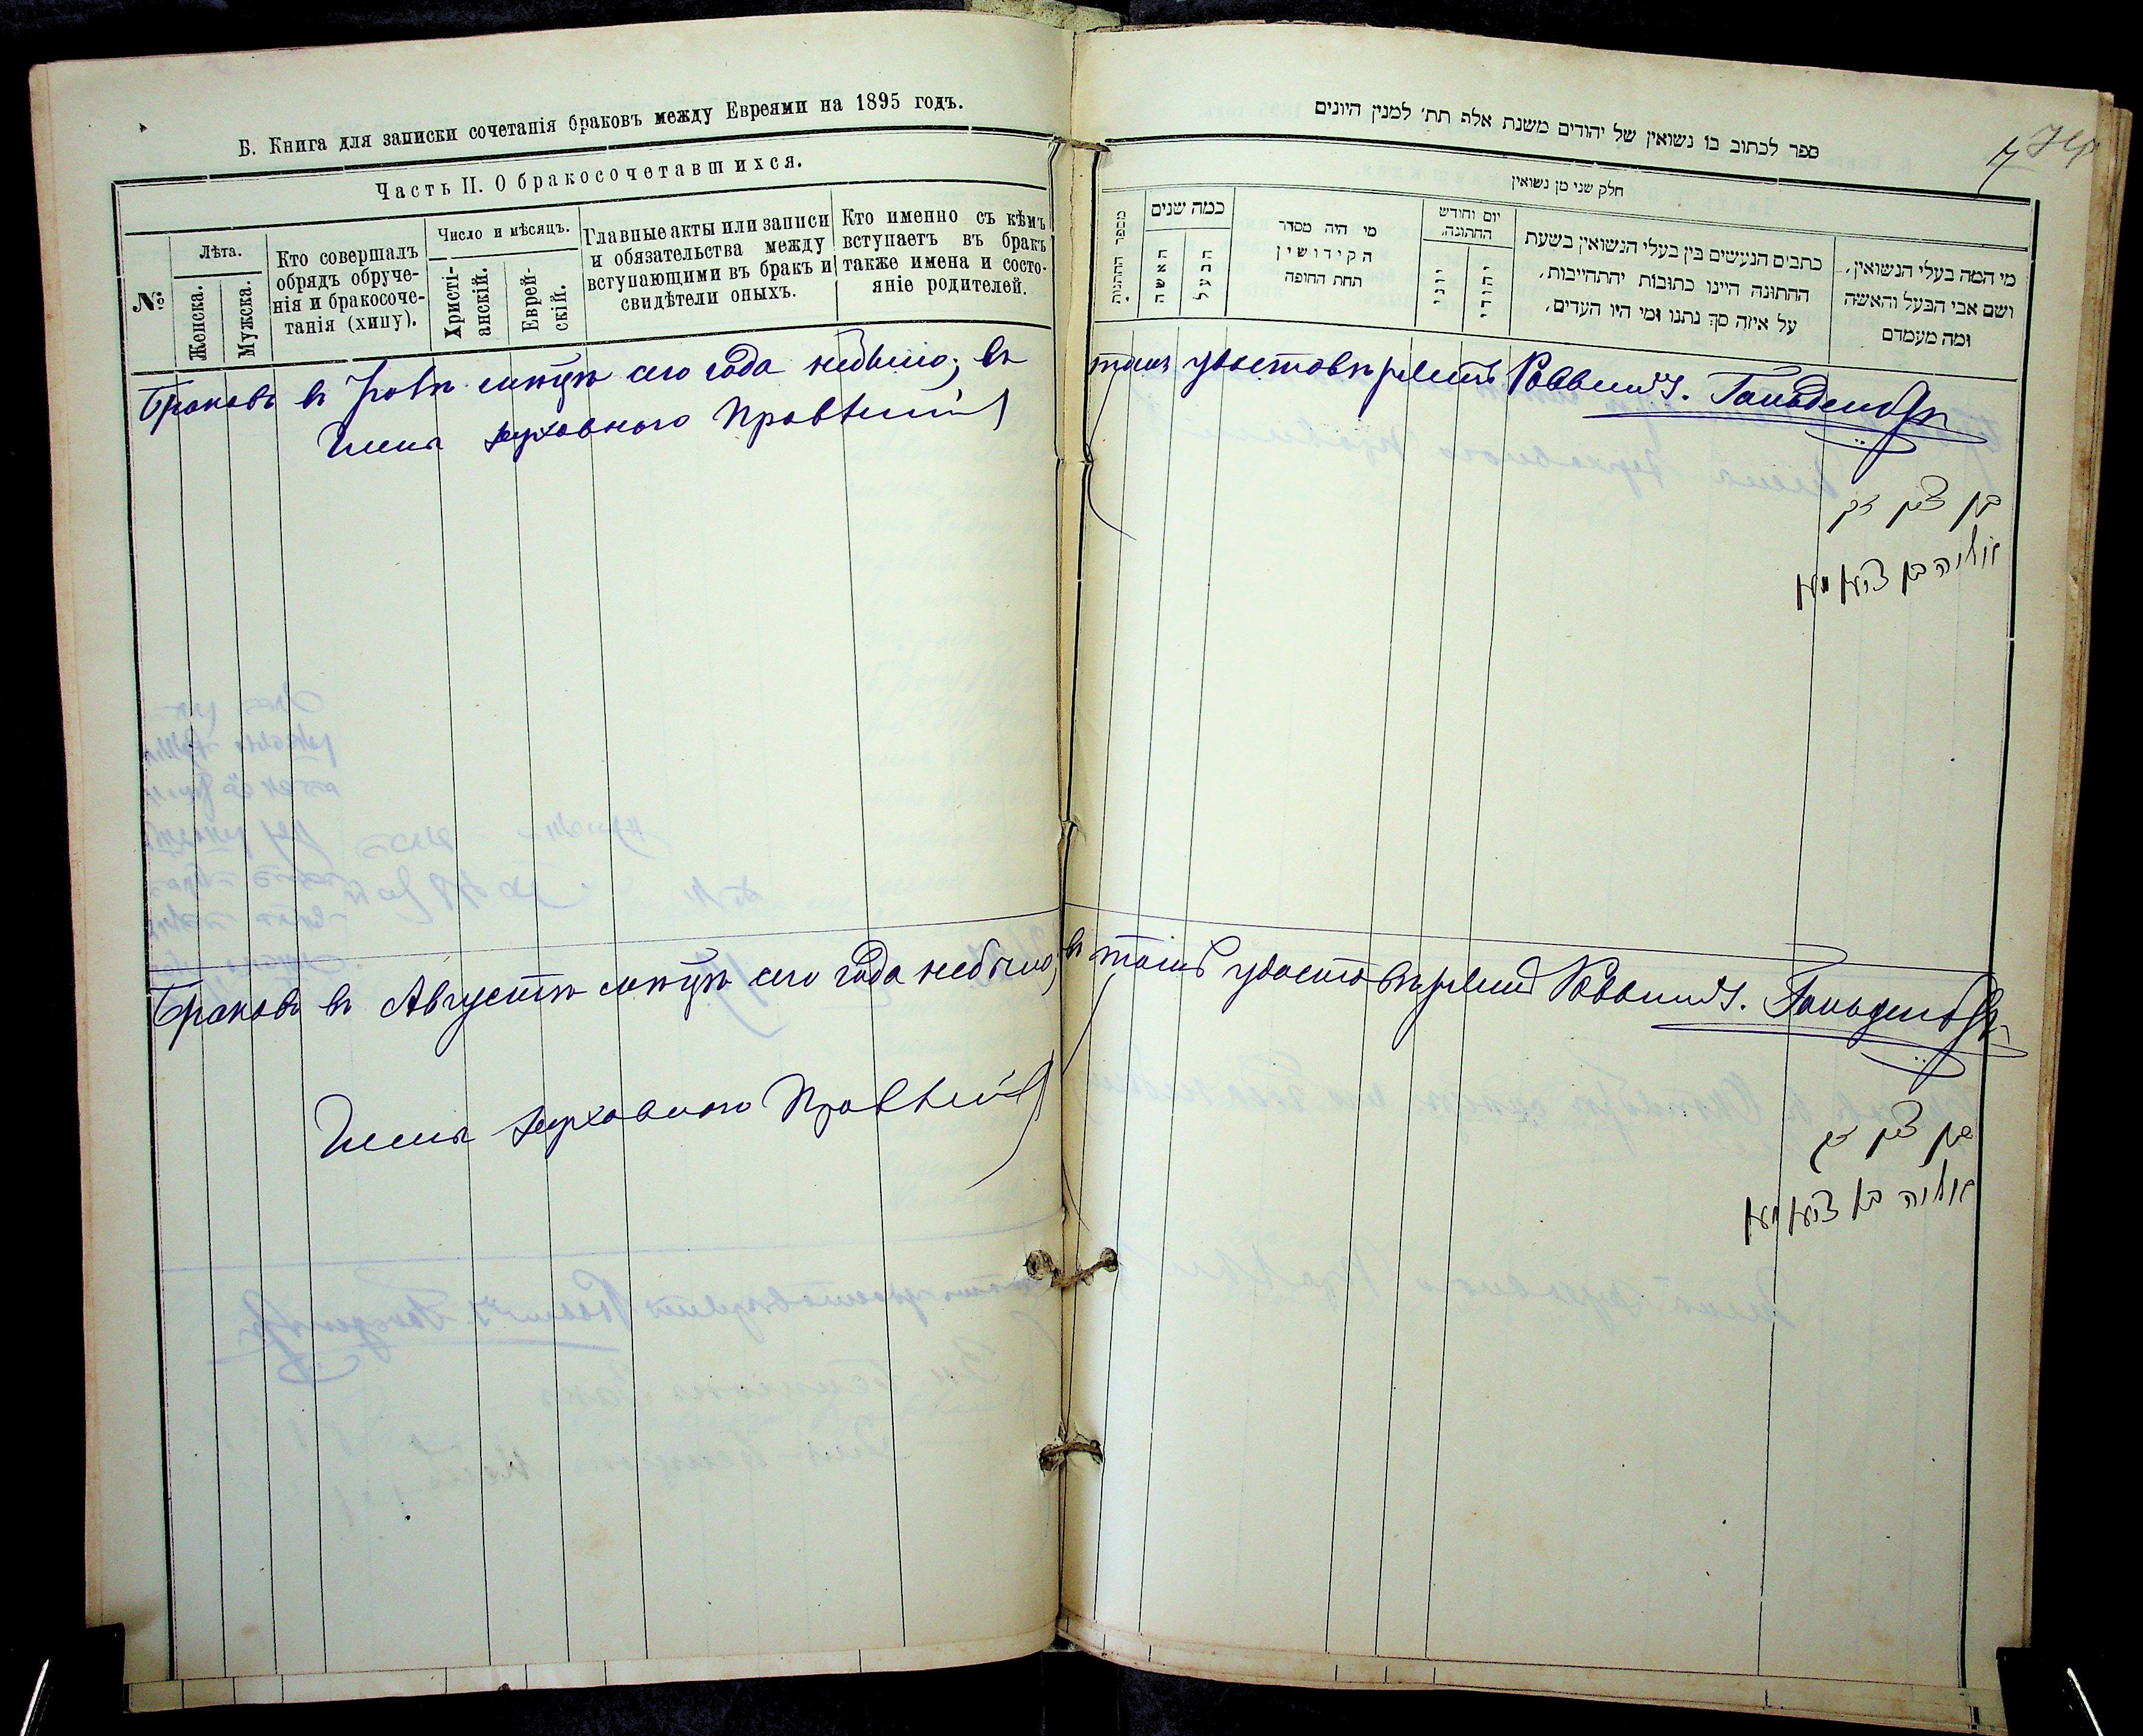 Б. Книга для записки сочетанія браковъ между Евреями на 1895 годъ.
Часть II. О бракосочетавшихся.
№
Лѣта.
Женска.
Мужска.
Кто совершалъ
обрядъ обруче-
нія и бракосоче-
танія (хипу).
Число и мѣсяцъ.
Христі-
анскій.
Еврей-
скій.
Главные акты или записи
и обязательства между
вступающими въ бракъ и
свидѣтели оныхъ.
Кто именно съ кѣмъ
вступаетъ въ бракъ
также имена и состо-
яніе родителей.
ספר לכתוב בו נשואין של יהודים משנת אלף תת׳ למנין היונים
7
חלק שני מן נשואין
מי המה בעלי הנשואין,
ושם אבי הבעל והאשה
ומה מעמדם
כתבים הנעשים בין בעלי הנשואין בשעת
החתונה היינו כתובות יהתחייבות,
על איזה סך נתנו ומי היו העדים,
יום וחודש
החתונה,
יהודי
יוני
מי היה מסדר
הקידושין
תחת החופה
כמה שנים
הבעל
האשה
מספר החתונות
Браковъ въ мѣсяцѣ сего года небыло; въ
томъ удостовѣряетъ Раввинъ
Члены духовнаго Правленія
בן ציון
אליה בן ציון
Браковъ въ Августѣ мѣсяцѣ сего года небыло; въ томъ удостовѣряетъ Раввинъ
Члены духовнаго Правленія
בן ציון
אליה בן ציון